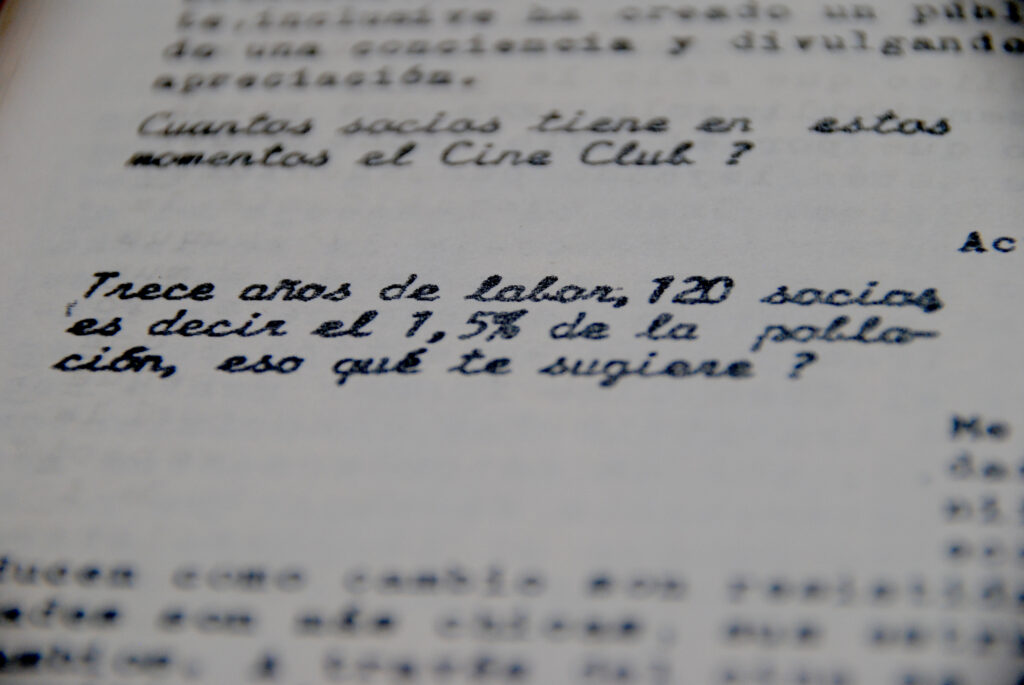 te, inclusive ha creado un públ
do una conciencia y divulgando
apreciación.
Cuantos socios tiene en estos
momentos el Cine Club ?
Ac
Trece años de labor, 120 socios,
es decir el 1,5% de la pobla-
ción, eso qué te sugiere ?
Me
das
ducen como cambio son resistid
son más chicas,
A través del